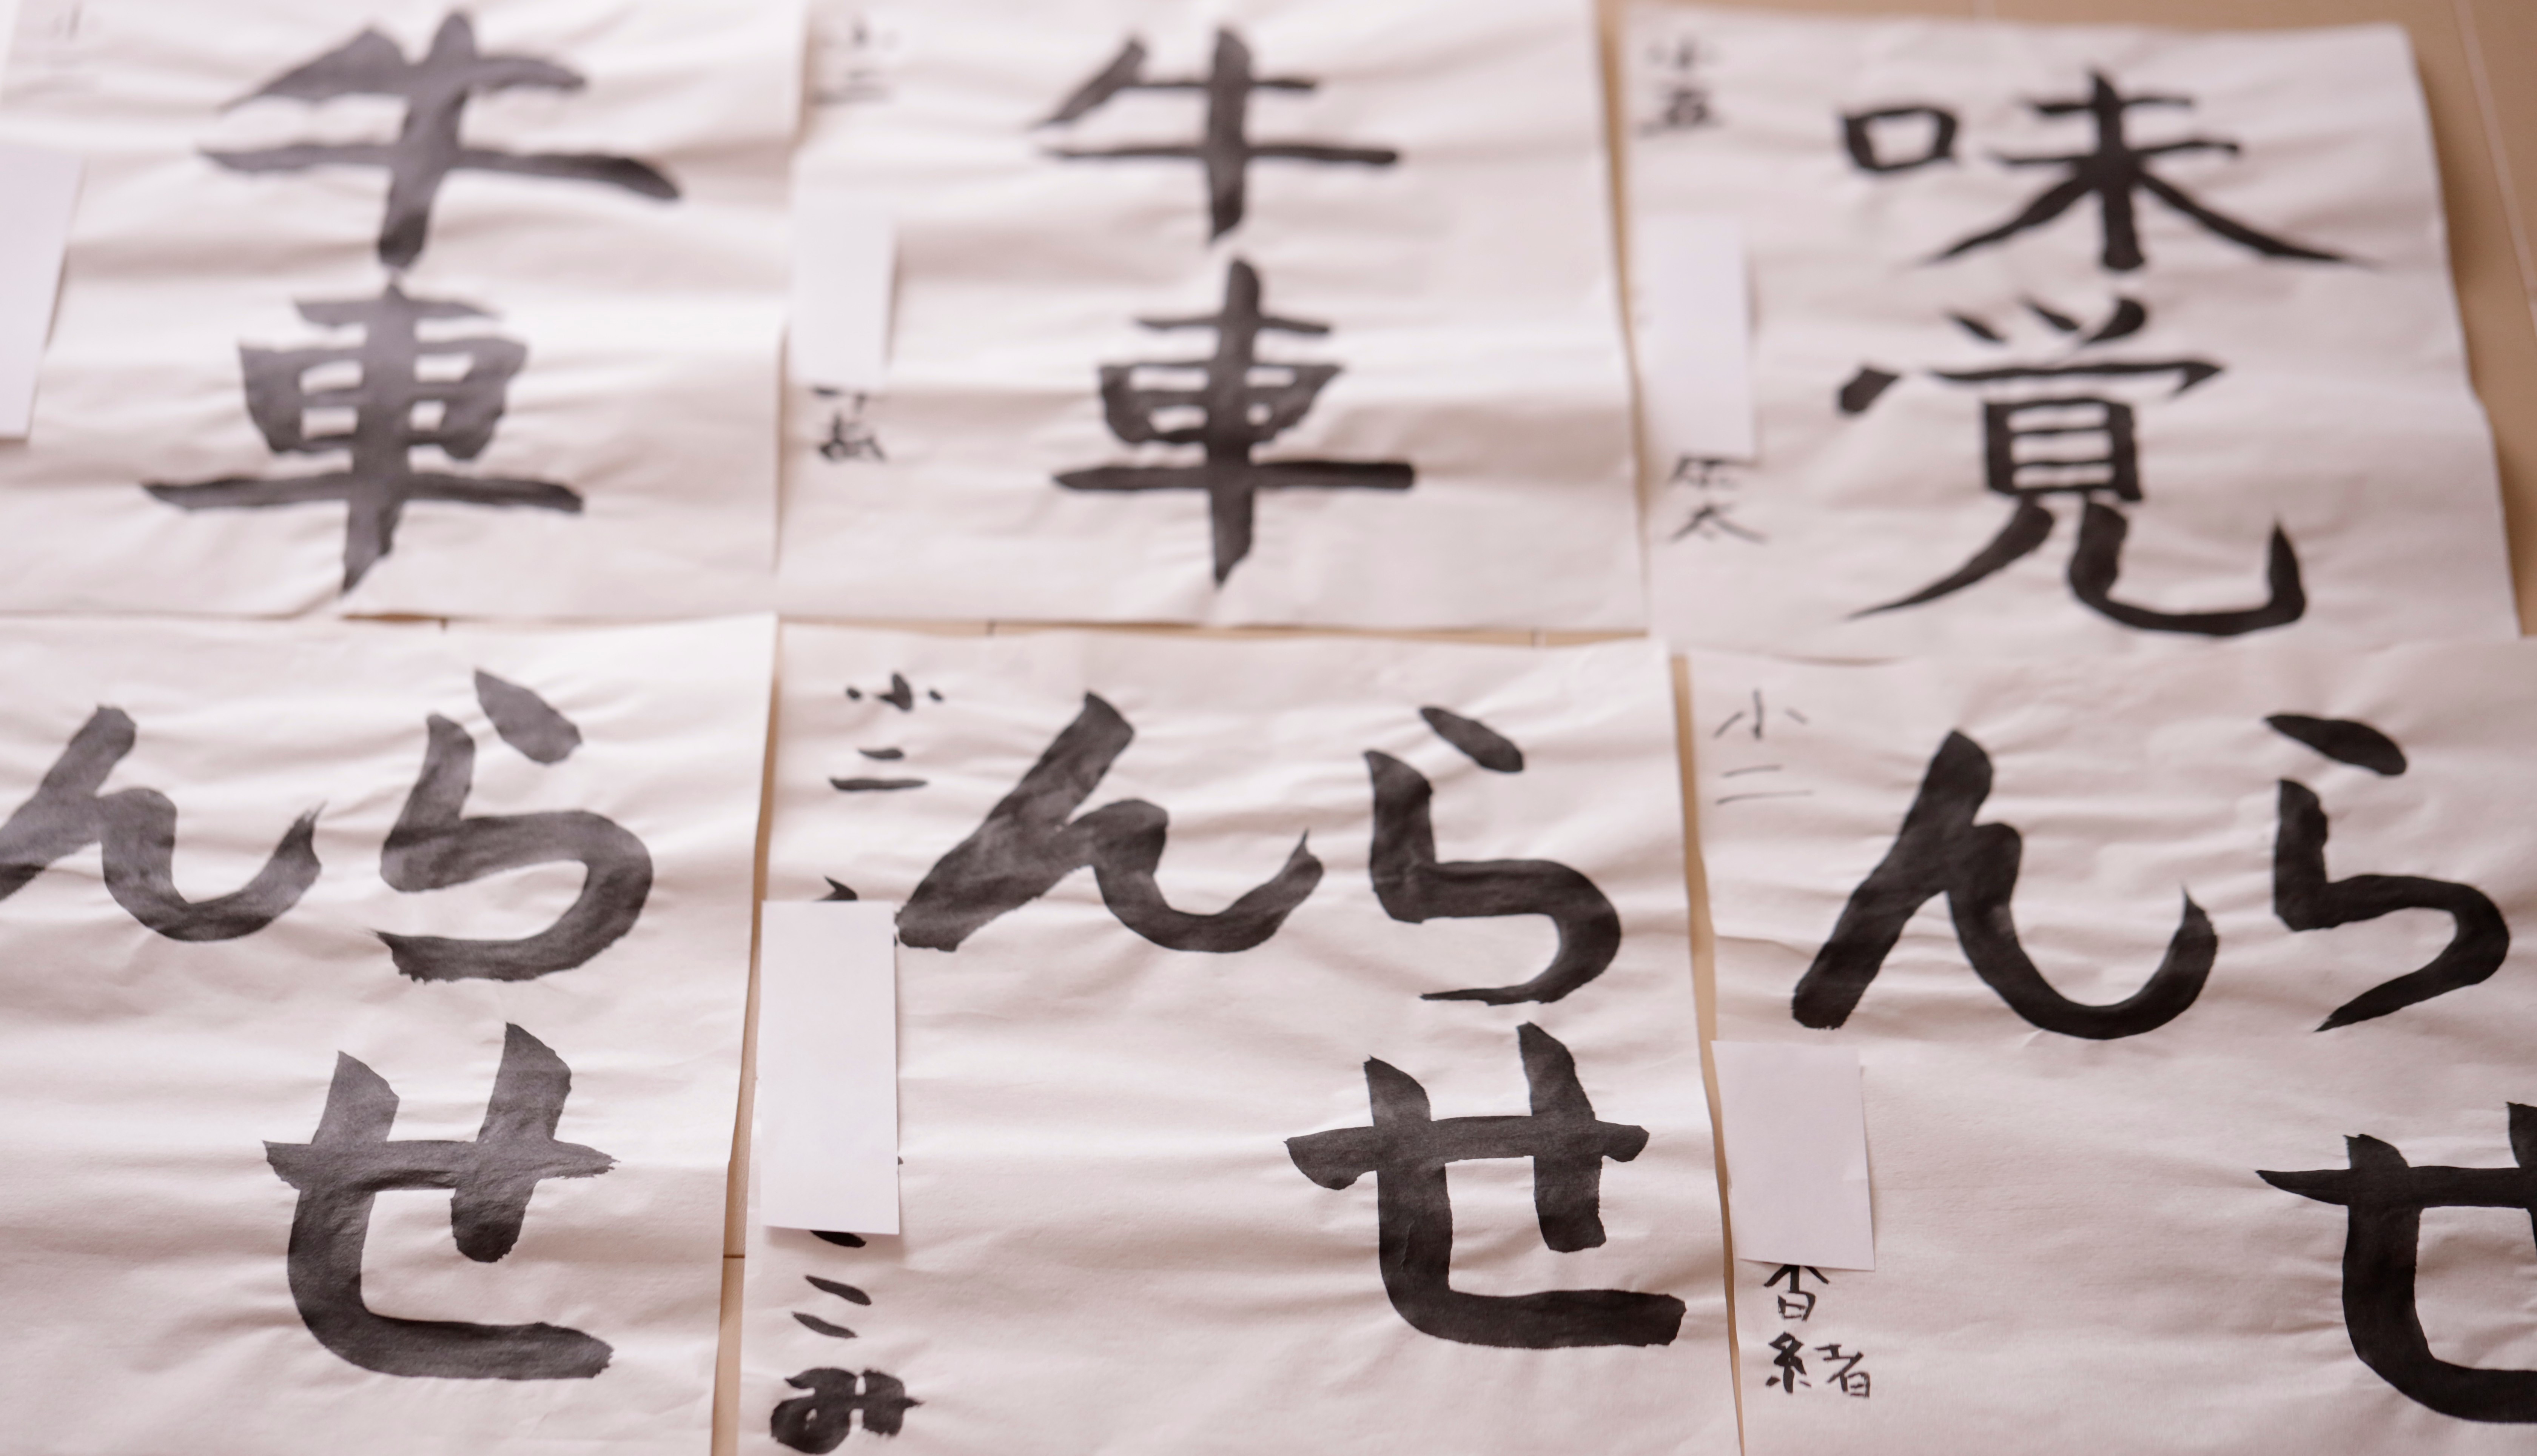 牛車
牛車
小二
味覚
小五
太
らせ
ん
らせ
ん
小二
み
らせ
ん
小二
香緒